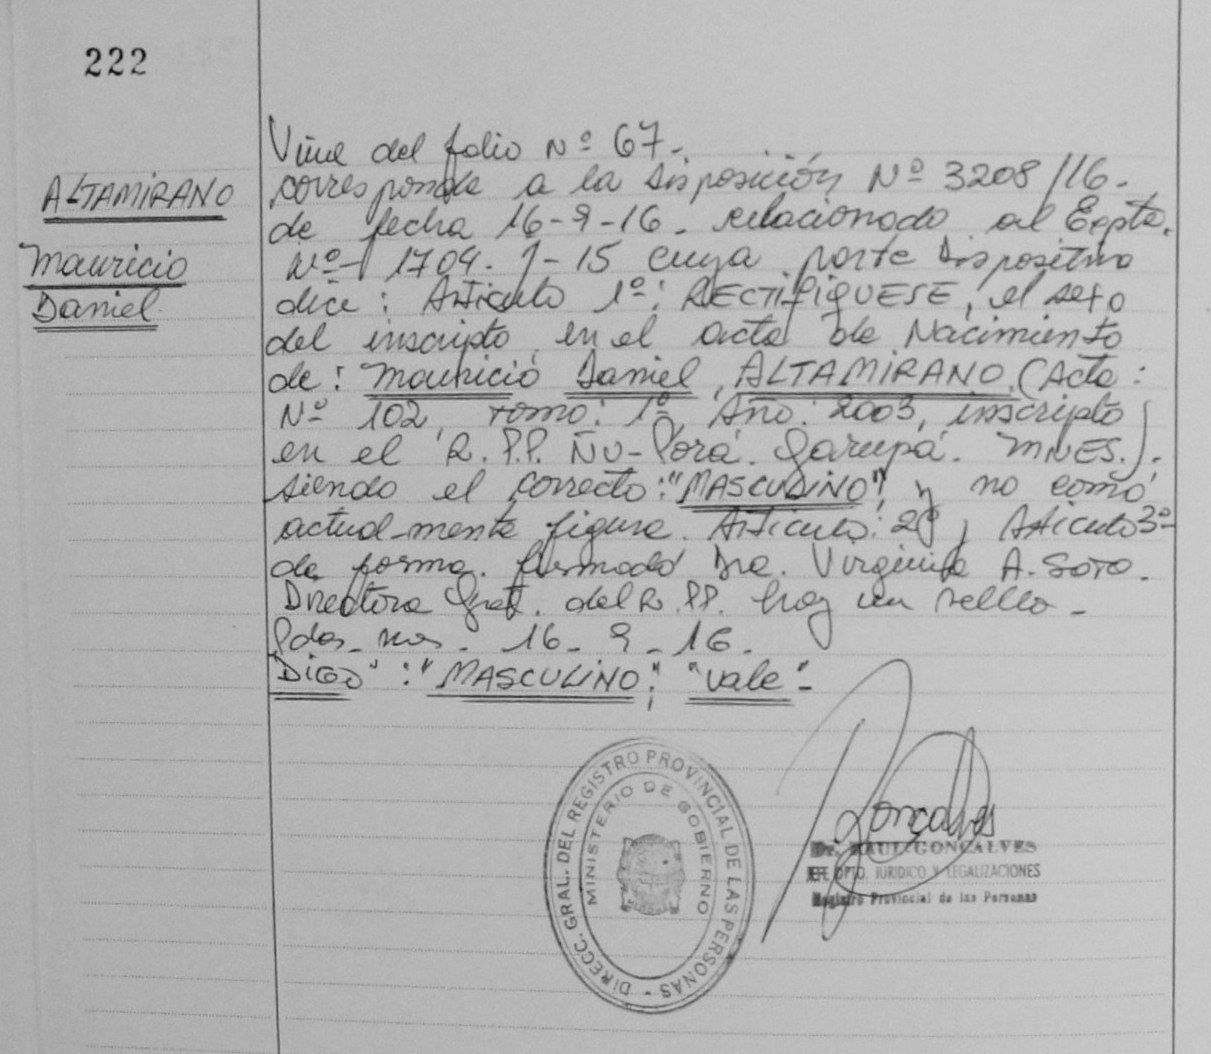 222
ALTAMIRANO
Mauricio
Daniel
Viene del folio Nº 67.
corresponde a la Disposición Nº 3208/16.
de fecha 16-9-16. relacionado al Expte.
Nº 1704. J-15 cuya parte Dispositiva
dice: Artículo 1º: RECTIFIQUESE, el sexo
del inscripto, en el acta de Nacimiento
de: Mauricio Daniel, ALTAMIRANO (Acta:
Nº 102, Tomo: 1º, Año: 2003, inscripto
en el R.P.P. ÑU-Porá. Garupá. MNES.).
siendo el correcto: "MASCULINO" y no como
actual-mente figura. Artículo: 2º, Artículo 3º
de forma. firmado Dra. Virginia A. Soto.
Directora Gral. del R.PP. hay un sello-
Pdas. Mnes. 16-9-16.
Digo": "MASCULINO"; "Vale"-
DIRECC. GRAL. DEL REGISTRO PROVINCIAL DE LAS PERSONAS -
MINISTERIO DE GOBIERNO
Gonçalves
Dr. RAUL GONCALVES
JEFE DPTO. JURIDICO Y LEGALIZACIONES
Registro Provincial de las Personas